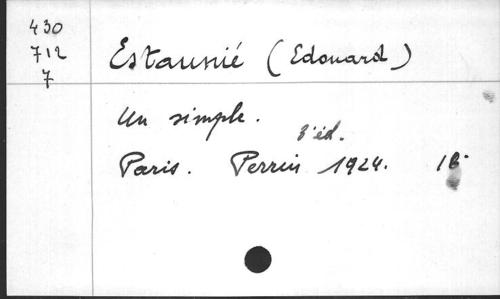 430
712
7
Estaunié (Edouard)
Un simple.
3e éd.
Paris. Perrin 1924.